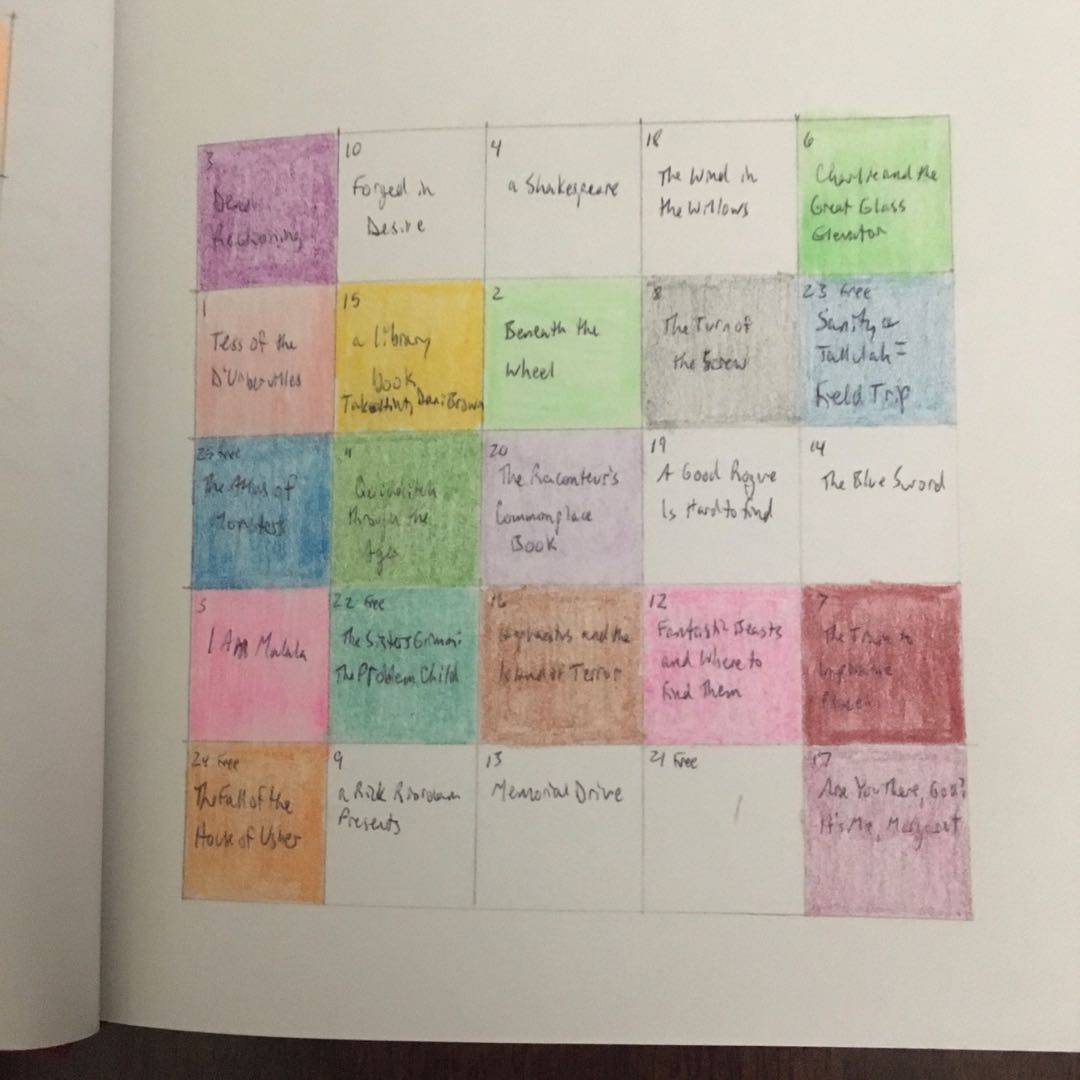 3
Dead
Reckoning
10
Forged in
Desire
4
a Shakespeare
18
The Wind in
the Willows
6
Charlie and the
Great Glass
Elevator
1
Tess of the
D'Urbervilles
15
a library
book
Take a Hint, Dani Brown
2
Beneath the
Wheel
8
The Turn of
the Screw
23 Free
Sanity &
Tallulah:
Field Trip
25 Free
The Atlas of
Monsters
11
Quidditch
Through the
Ages
20
The Raconteur's
Commonplace
Book
19
A Good Rogue
Is Hard to find
14
The Blue Sword
5
I Am Malala
22 Free
The Sisters Grimm:
The Problem Child
16
and the
Island of Terror
12
Fantastic Beasts
and Where to
Find Them
7
The Train to
Impossible
Places
24 Free
The Fall of the
House of Usher
9
a Rick Riordan
Presents
13
Memorial Drive
21 Free
17
Are You There, God?
It's Me, Margaret